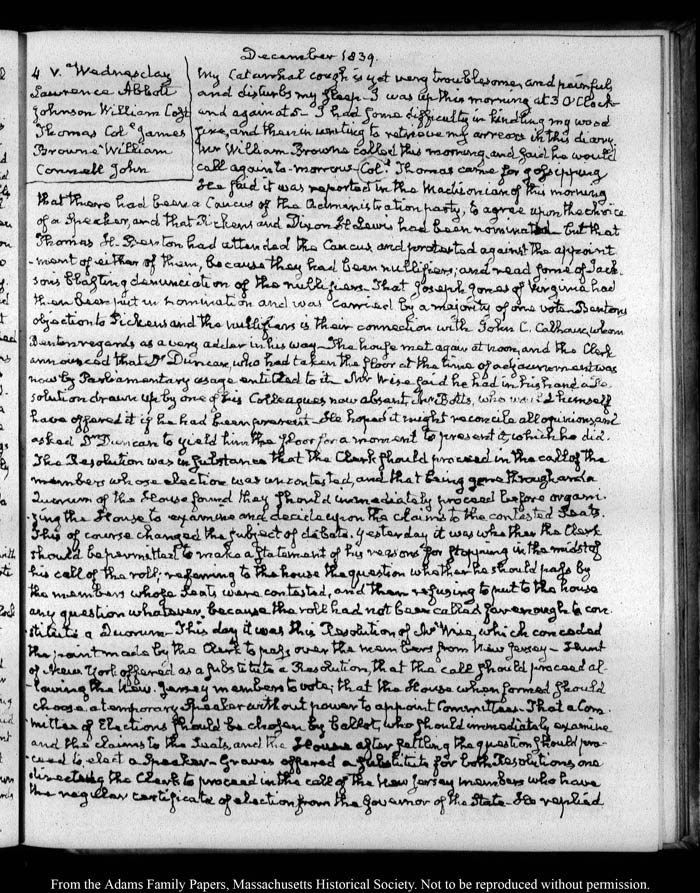 December 1839.
4. V. Wednesday
Lawrence Abbott
Johnson William Cost
Thomas Col.ᵉ James
Browne William
Connell John
My Catarrhal cough is yet very troublesome, and painful,
and disturbs my sleep— I was up this morning at 3 O'Clock
and again at 5— I had some difficulty in kindling my wood
fire, and then in writing to retrieve my arrears in this diary.
Mr William Browne called this morning and said he would
call again to-morrow. Col.ˡ Thomas came for gossipping
He said it was reported in the Madisonian of this morning
that there had been a Caucus of the Administration party, to agree upon the choice
of a Speaker, and that Pickens and Dixon H. Lewis had been nominated— but that
Thomas H. Benton had attended the Caucus and protested against the appoint
-ment of either of them, because they had been nullifiers; and read some of Jack-
son's blasting denunciation of the nullifiers— That Joseph Jones of Virginia had
then been put in nomination and was carried by a majority of one vote— Benton's
objection to Pickens and the nullifiers is their connection with John C. Calhoun, whom
Benton regards as a very adder in his way— The house met again at noon, and the Clerk
announced that Dr Duncan, who had taken the floor at the time of adjournment was
now by Parliamentary usage entitled to it. Mr Wise said he had in his hand a Re-
solution drawn up by one of his Colleagues now absent, Mr Botts, who would himself
have offered it if he had been present— He hoped it might reconcile all opinions, and
asked Dr Duncan to yield him the floor for a moment to present it, which he did.
The Resolution was in substance that the Clerk should proceed in the call of the
members whose election was uncontested, and that being gone through and a
Quorum of the House formed they should immediately proceed before organi-
-zing the House to examine and decide upon the claims to the contested Seats.
This of course changed the subject of debate. Yesterday it was whether the Clerk
should be permitted to make a statement of his reasons for stopping in the midst of
his call of the roll; referring to the house the question whether he should pass by
the members whose seats were contested, and then refusing to put to the house
any question whatever, because the roll had not been called far enough to con-
stitute a Quorum— This day it was this Resolution of Mr Wise, which conceded
the point made by the Clerk to pass over the members from New Jersey— Hunt
of New York offered as a substitute a Resolution, that the call should proceed al-
-lowing the New-Jersey members to vote; that the House when formed should
choose a temporary Speaker without power to appoint Committees. That a Com-
mittee of Elections should be chosen by ballot, who should immediately examine
and the claims to the Seats, and the House after settling the question should pro-
-ceed to elect a Speaker— Graves offered a substitute for both Resolutions, one
directing the Clerk to proceed in the call of the New Jersey members who have
the regular certificate of election from the Governor of the State— He replied
From the Adams Family Papers, Massachusetts Historical Society. Not to be reproduced without permission.